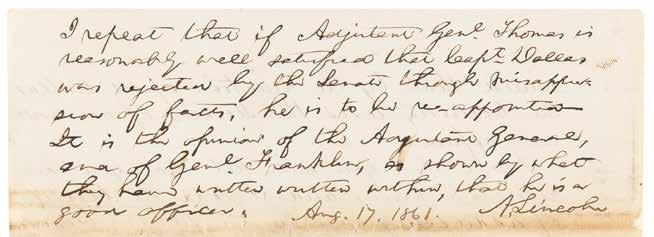 I repeat that if Adjutant Genl. Thomas is
reasonably well satisfied that Capt. Dallas
was rejected by the Senate through misappre-
sion of facts, he is to be re-appointed
It is the opinion of the Adjutant General,
and of Genl. Franklin, as shown by what
they have written written within, that he is a
good officer.
Aug. 17, 1861. A. Lincoln